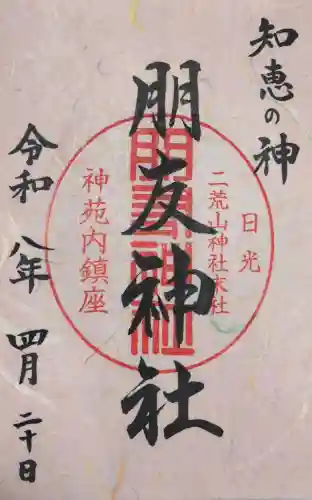 知恵の神
日光
二荒山神社末社
朋友神社
神苑内鎮座
令和八年四月二十日